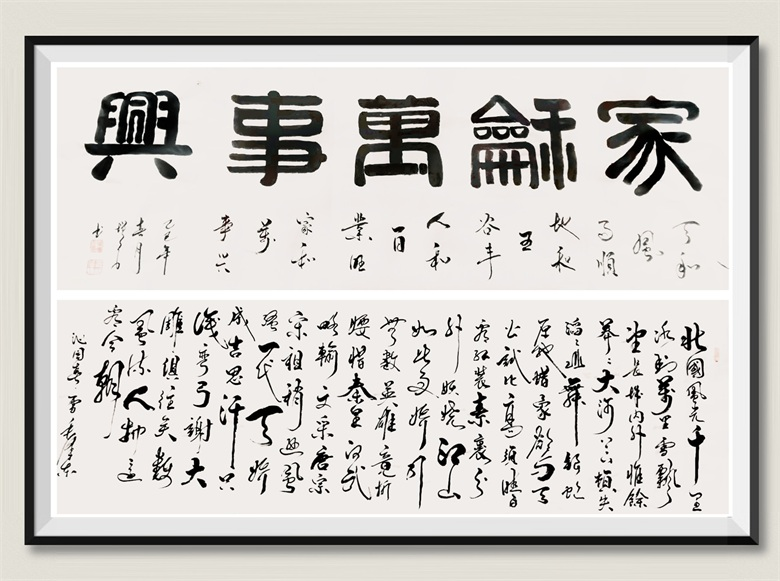 家龢萬事興
天和
風
雨順
地和
五
谷丰
人和
百
業旺
家和
萬
事兴
年
春月
书
北國風光千里
冰封萬里雪飄
望長城内外惟餘
莽〻大河上下頓失
滔〻山舞銀蛇
原馳蜡象欲与天
公試比高須晴日
看红裝素裹分
外妖嬈江山
如此多嬌引
無數英雄竞折
腰惜秦皇漢武
略輸文采唐宗
宋祖稍遜風
騷一代天嬌
成吉思汗只
識彎弓謝大
雕俱往矣數
風流人物還
看今朝
沁園春雪毛澤東